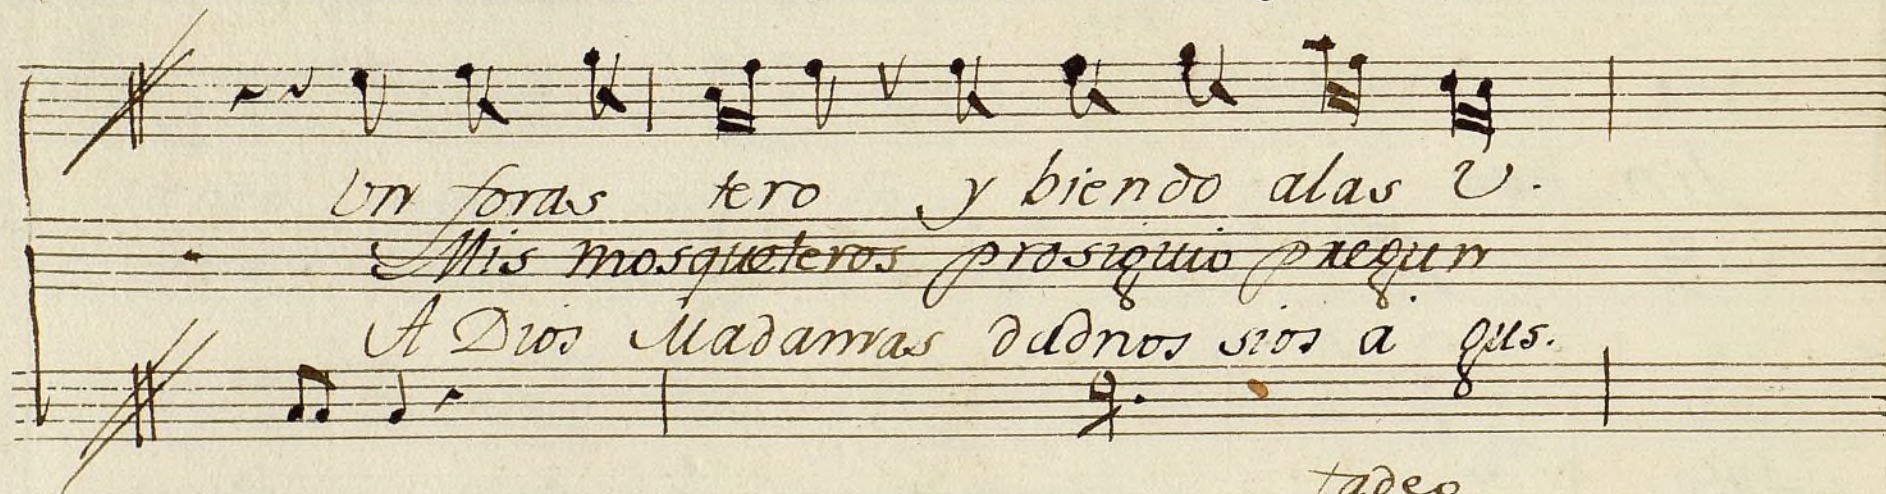 Un foras tero y biendo alas U.
Mis mosqueteros prosiguio pregun
A Dios Madamas dadnos sios a gus.
tadeo